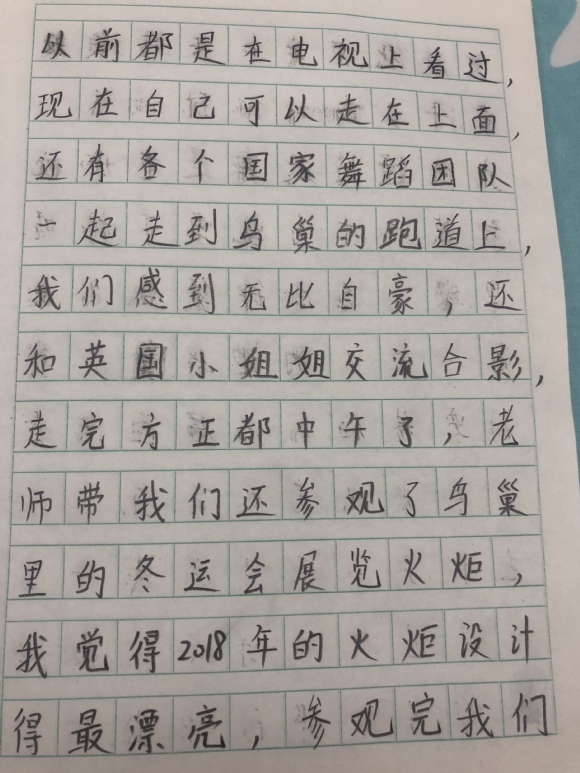 以前都是在电视上看过，
现在自己可以走在上面，
还有各个国家舞蹈团队
一起走到鸟巢的跑道上，
我们感到无比自豪，还
和英国小姐姐交流合影，
走完方正都中午了，老
师带我们还参观了鸟巢
里的冬运会展览火炬，
我觉得2018年的火炬设计
得最漂亮，参观完我们